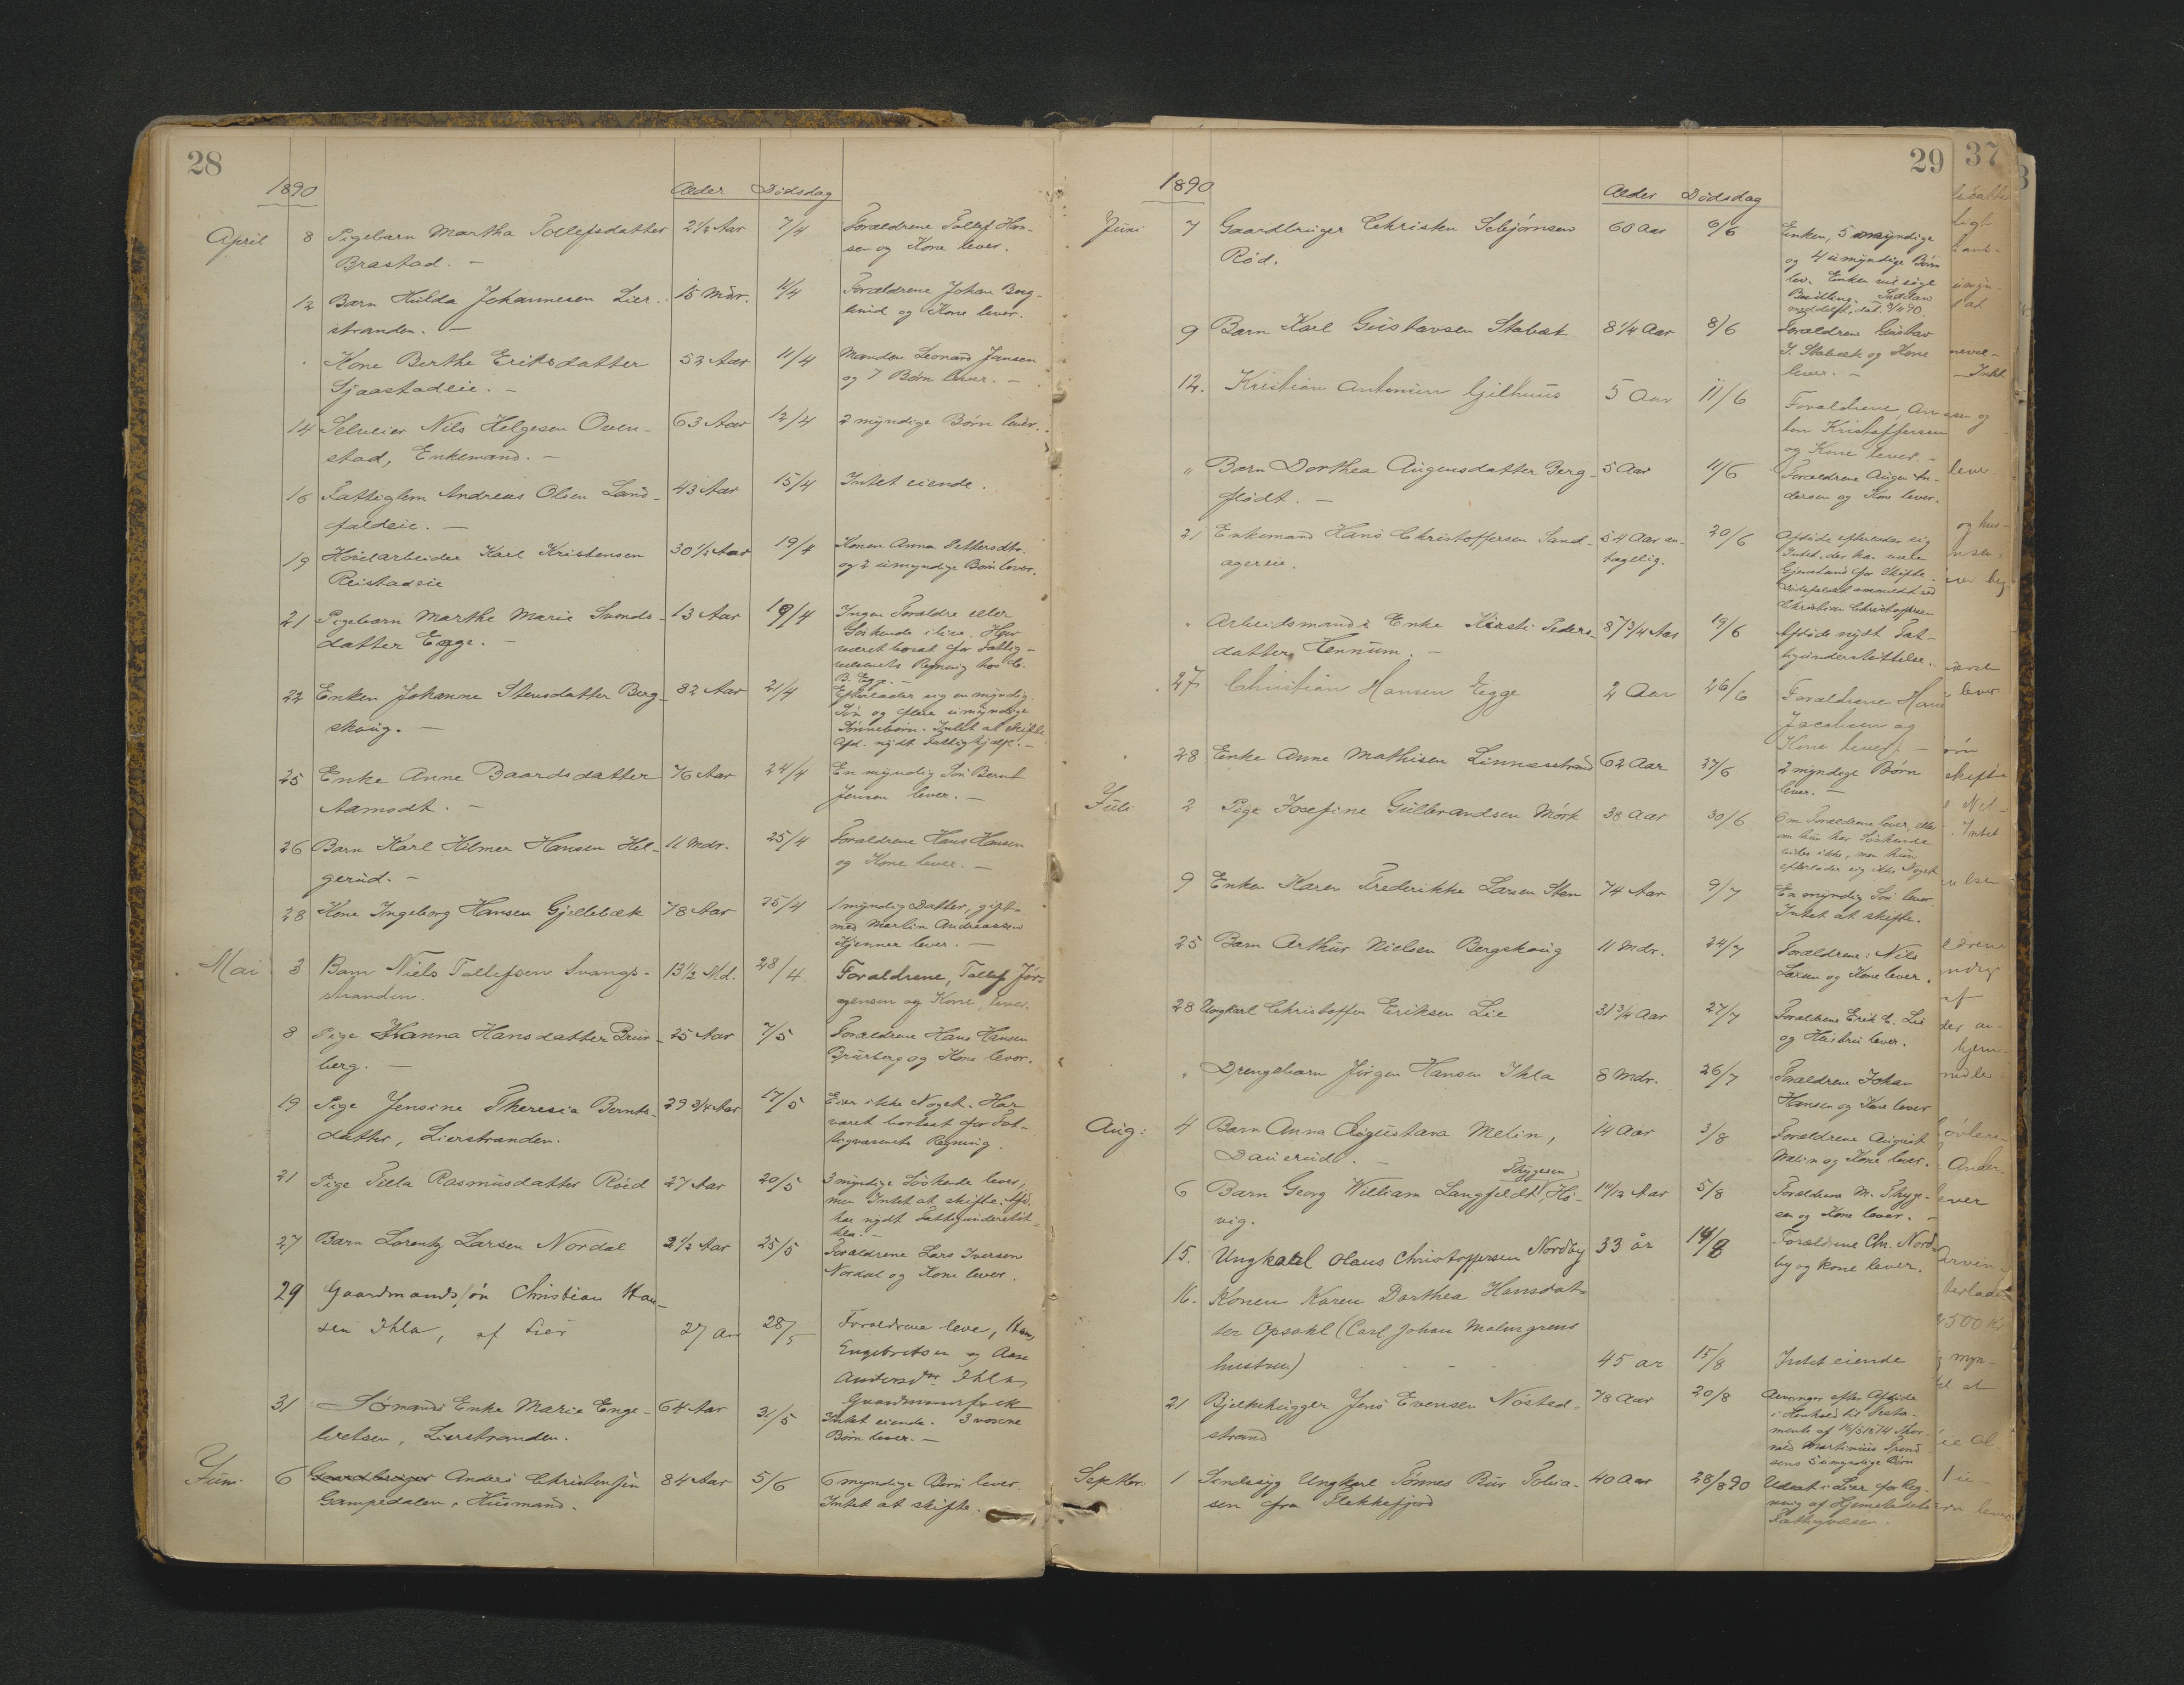 28
1890
Alder Dödsdag
April 8 Pigebarn Martha Tollefsdatter 2 1/2 Aar 7/4 Forældrene Tollef Han-
Brastad. — sen og Kone lever.
12 Barn Hulda Johannesen Lier- 15 Mdr. 11/4 Forældrene Johan Berg-
stranden. — og Kone lever.
Kone Berthe Eriksdatter 52 Aar 11/4 Manden Leonard Jansen
Sjaastadeie. — og 7 Børn lever. —
14 Selveier Nils Helgesen Oven- 63 Aar 12/4 2 myndige Børn lever.
stad, Enkemand. —
16 Fattiglem Andreas Olsen Land- 43 Aar 15/4 Intet eiende.
faldeie. —
19 Høvlarbeider Karl Kristensen 30 1/2 Aar 19/4 Konen Anna Pettersdtr.
Reistadeie og 2 umyndige Børn lever.
21 Pigebarn Marthe Marie Svends- 13 Aar 19/4 Ingen Forældre eller
datter Egge. — Söskende ilive. Har
været bosat for Fattig-
væsenets Regning hos C.
B. Egge. —
22 Enken Johanne Stensdatter Berg- 82 Aar 21/4 Efterlader sig en myndig
skoug. — Sön og flere umyndige
Sönnebörn. Intet at skifte
Afd. nydt Fattighjælp. —
25 Enke Anne Baardsdatter 76 Aar 24/4 En myndig Sön Bernt
Aamodt. — Jensen lever. —
26 Barn Karl Hilmer Hansen Hel- 11 Mdr. 25/4 Forældrene Hans Hansen
gerud. — og Kone lever. —
28 Kone Ingeborg Hansen Gjellebæk 78 Aar 25/4 1 myndig Datter, gift
med Martin Andreassen
Kjenner lever. —
Mai 3 Barn Niels Tollefsen Svangs- 13 1/2 Md. 28/4 Forældrene, Tollef Jör-
stranden. gensen og Kone, lever.
8 Pige Hanna Hansdatter Brur- 25 Aar 7/5 Forældrene Hans Hansen
berg. — Brurberg og Kone lever.
19 Pige Jensine Theresia Bernts- 29 3/4 Aar 17/5 Eier ikke Noget. Har
datter, Lierstranden. været bortsat for Fat-
tigvæsenets Regning.
21 Pige Tilla Rasmusdatter Röed 27 Aar 20/5 3 myndige Söskende lever,
men Intet at skifte. Afd.
har nydt Fattigunderstöt-
telse. —
27 Barn Lorentz Larsen Nordal 2 1/2 Aar 25/5 Forældrene Lars Iversen
Nordal og Kone lever.
29 Gaardmandssön Christian Han-
sen Ihla, af Lier 27 Aar 28/5 Forældrene leve, Hans
Engebretsen og Aase
Andersdtr Ihla,
Gaardmannsfolk
31 Sömands Enke Marie Enge- 64 Aar 31/5 Intet eiende. 3 voxne
bretsen, Lierstranden. Börn lever. —
Juni 6 Gaardbruger Anders Christensen 84 Aar 5/6 6 myndige Börn lever.
Gampedalen, Husmand. Intet at skifte.
29
37
1890
Alder Dödsdag
Juni 7 Gaardbruger Christen Sebjörnsen 60 Aar 6/6 Enken, 5 myndige
Röd. og 4 umyndige Börn
lev. Enken vil söge
Bevilling. Saadan
meddelt, dat. 9/11 90.
9 Barn Karl Gustavsen Stabæk 8 1/4 Aar 8/6 Forældrene Gustav
J. Stabæk og Kone
lever. —
12. Kristian Antonsen Gilhuus 5 Aar 11/6 Forældrene An-
ton Kristoffersen
og Kone lever. —
" Barn Dorthea Augensdatter Berg- 5 Aar 11/6 Forældrene Augen An-
flödt. — dersen og Kone lever.
21 Enkemand Hans Christoffersen Sand- 54 Aar an- 20/6 Afdöde efterlader sig
agereie. tagelig. Intet, der kan være
Gjenstand for Skifte.
Dödsfaldet anmeldt ved
Christian Christoffersen
" Arbeidsmands Enke Kirsti Peders- 87 3/4 Aar 19/6 Afdöde nydt Fat-
datter Hennum. — tigunderstöttelse.
27 Christian Hansen Egge 2 Aar 26/6 Forældrene Hans
Jacobsen og
Kone lever. —
28 Enke Anne Mathisen Linnesstrand 62 Aar 27/6 2 myndige Börn
lever. —
Juli 2 Pige Josefine Gulbrandsen Mörk 38 Aar 30/6 Om Forældrene lever, eller
om hun har Söskende
vides ikke, men hun
efterlader sig ikke Noget
9 Enken Karen Frederikke Larsen Sten 74 Aar 9/7 En myndig Sön lever
Intet at skifte.
25 Barn Arthur Nielsen Bergskoug 11 Mdr. 24/7 Forældrene: Nils
Larsen og Kone lever.
28 Ungkarl Christoffer Eriksen Lie 31 3/4 Aar 27/7 Forældrene Erik C. Lie
og Hustru lever.
" Drengebarn Jörgen Hansen Ihla 8 Mdr. 26/7 Forældrene Johan
Hansen og Kone lever
Aug: 4 Barn Anna Augustava Melin, 14 Aar 3/8 Forældrene August
Dauerud. — Melin og Kone lever.
Thygesen
6 Barn Georg William Langfeldt, Hö- 1 1/12 Aar 5/8 Forældrene M. Thyge-
vig. sen og Kone lever. —
15. Ungkarl Olaus Christoffersen Nordby 33 år 14/8 Forældrene Chr. Nord-
by og kone lever.
16. Konen Karen Dorthea Hansdat-
ter Opsahl (Carl Johan Malmgrens
hustru) 45 år 15/8 Intet eiende
21 Bjelkehugger Jens Evensen Nösted- 78 Aar 20/8 Arvinger efter Afdöde
strand i Henhold til Testa-
mente af 16/5 1874 Thor-
vald Martinius Trond-
sens 5 umyndige Börn
Septbr. 1 Sindssyg Ungkarl Tönnes Bur Tobia- 40 Aar 28/8 90 Udsat i Lier for Reg-
sen fra Flekkefjord ning af Hjemstedets
Fattigvæsen.